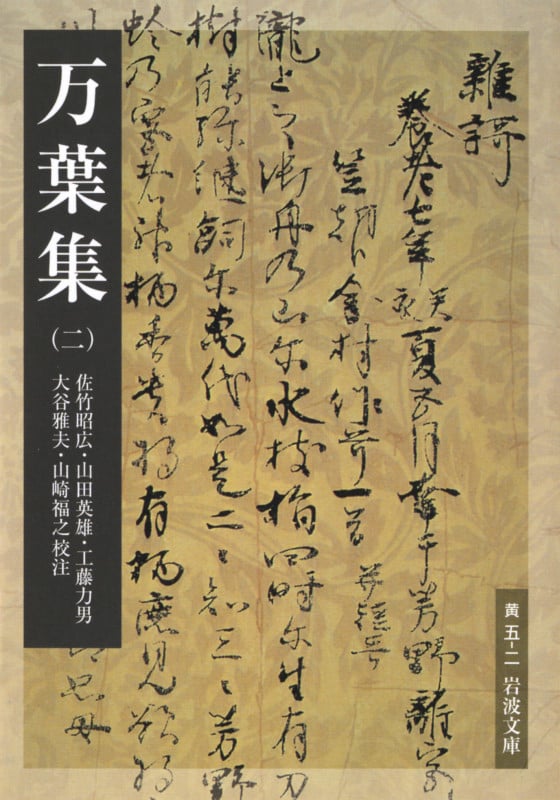 万葉集
(二)
佐竹昭広・山田英雄・工藤力男
大谷雅夫・山崎福之校注
雜謌
養老七年癸亥夏五月幸于芳野離宮
笠朝臣金村作哥一首 并短哥
瀧上之御舟乃山尓水枝指四時尓生有刀
樹能弥継嗣尓萬代如是二ゝ知三ゝ芳野
蛉乃宮者神柄香貴将有柄鹿見欲将
黄 五-二 岩波文庫